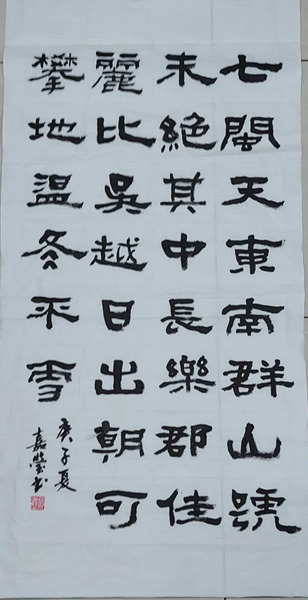 七閩天東南群山號
未絕其中長樂郡佳
麗比吳越日出朝可
攀地溫冬不雪
庚子夏
嘉瑩书